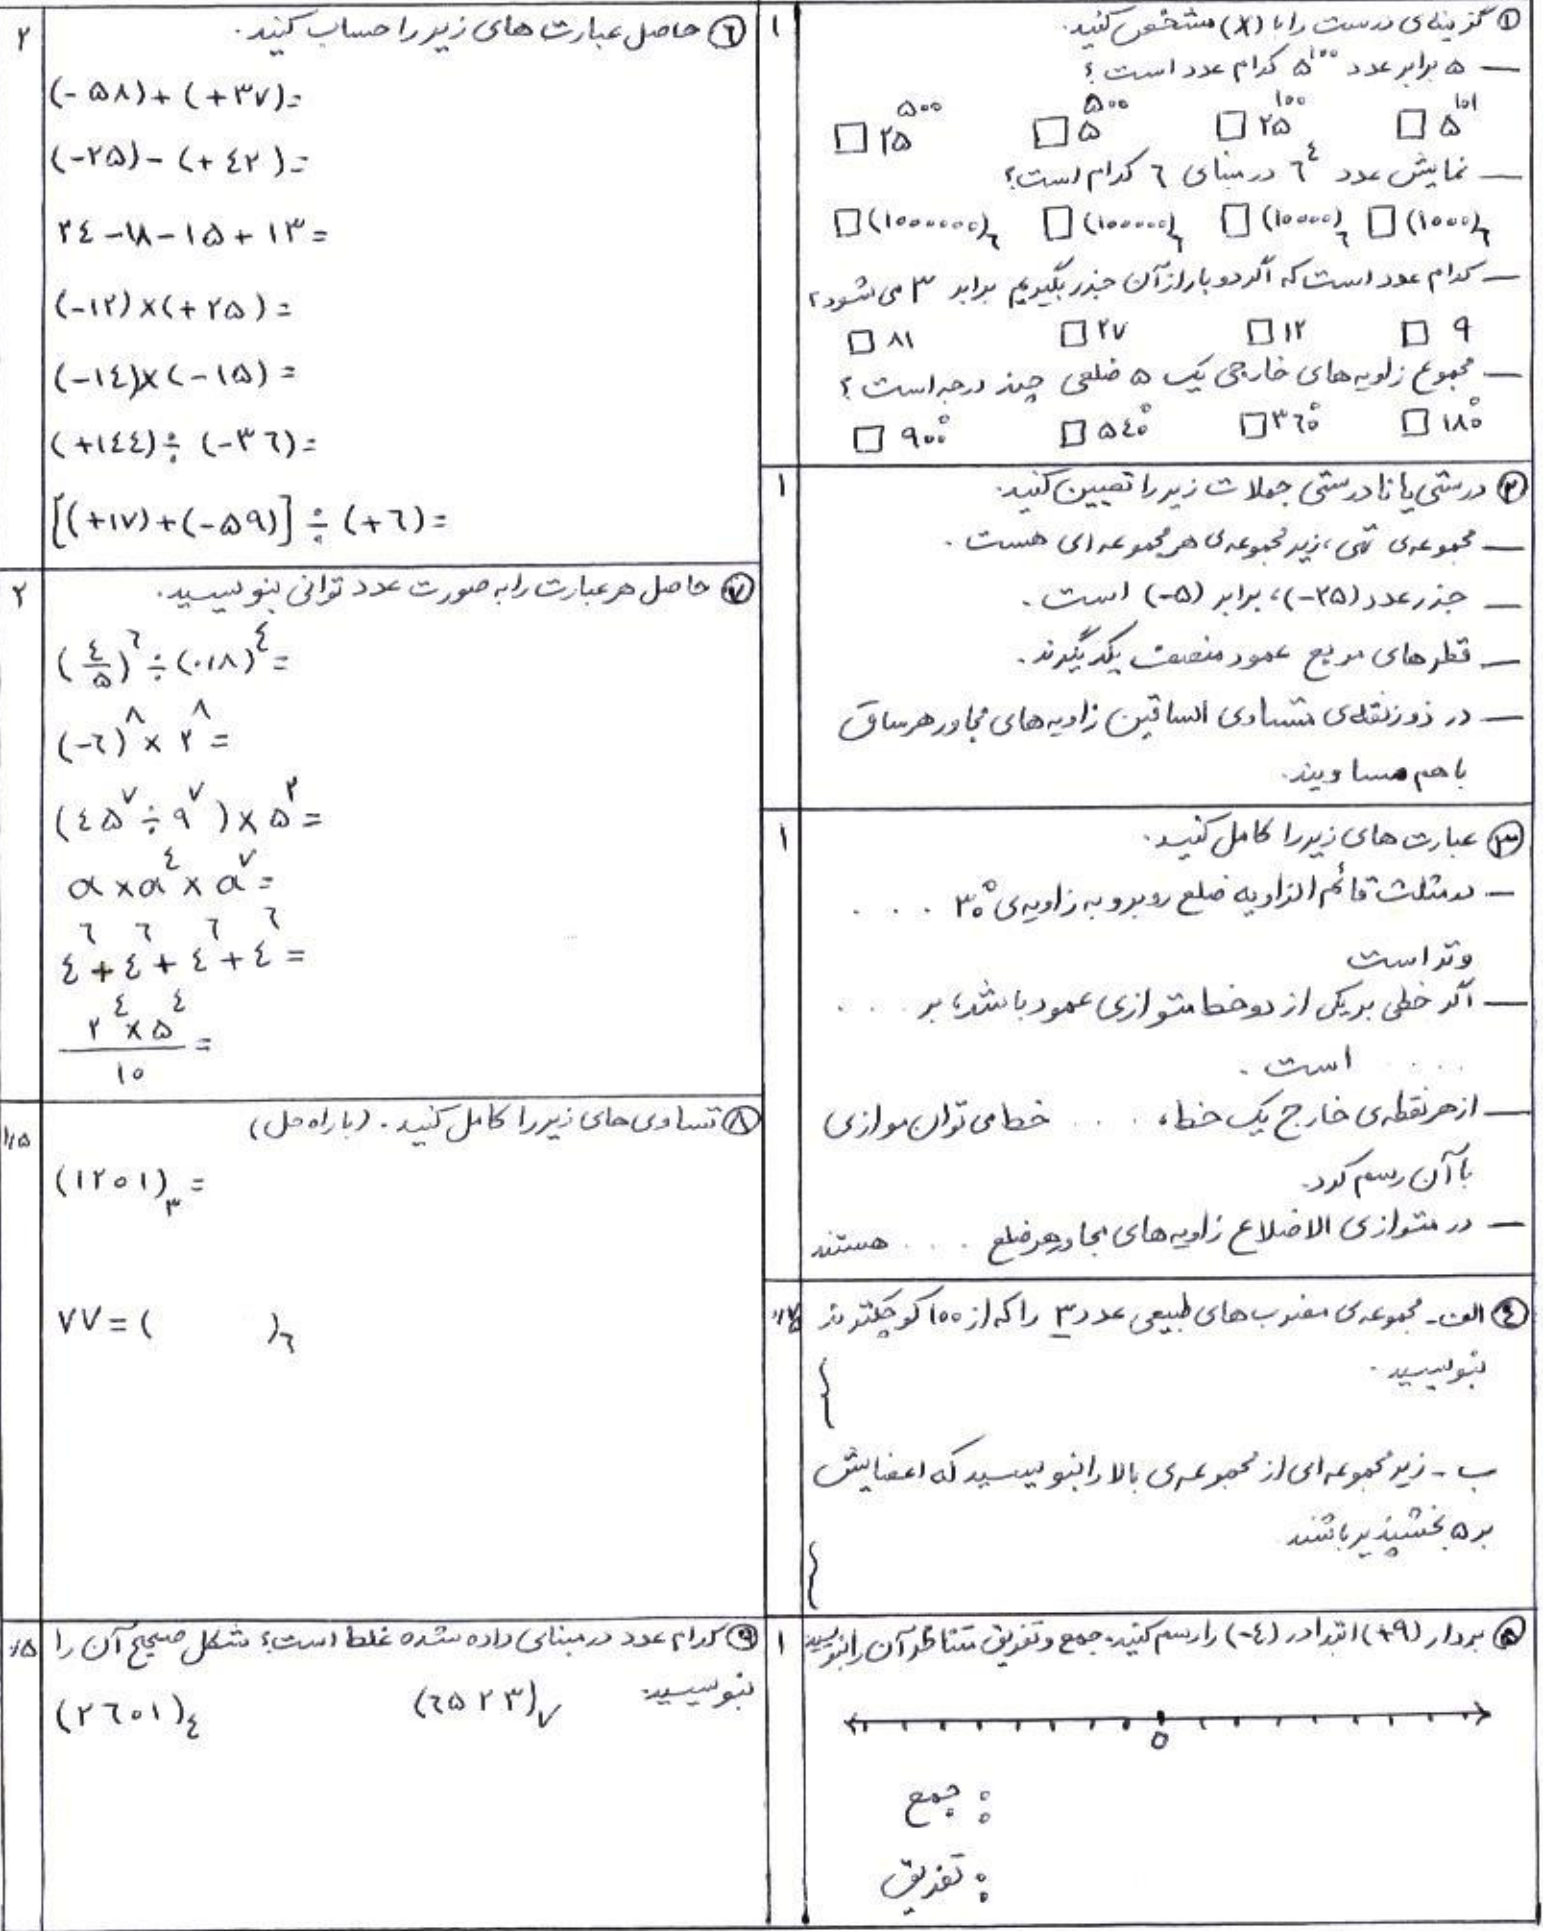 ۱ گزینه‌ی درست را با (X) مشخص کنید. ۱
— ۵ برابر عدد ۵^۱۰۰ کدام عدد است؟
□ ۵^۱۰۱ □ ۲۵^۱۰۰ □ ۵^۵۰۰ □ ۲۵^۵۰۰
— نمایش عدد ۶^۴ در مبنای ۶ کدام است؟
□ (۱۰۰۰)۶ □ (۱۰۰۰۰)۶ □ (۱۰۰۰۰۰)۶ □ (۱۰۰۰۰۰۰)۶
— کدام عدد است که اگر دو بار از آن جذر بگیریم برابر ۳ می شود؟
□ ۹ □ ۱۲ □ ۲۷ □ ۸۱
— مجموع زاویه های خارجی یک ۵ ضلعی چند درجه است؟
□ ۱۸۰° □ ۳۶۰° □ ۵۴۰° □ ۹۰۰°
۲ درستی یا نادرستی جملات زیر را تعیین کنید. ۱
— مجموعه‌ی تهی، زیر مجموعه‌ی هر مجموعه ای هست.
— جذر عدد (۲۵-)، برابر (۵-) است.
— قطرهای مربع عمود منصف یکدیگرند.
— در ذوزنقه‌ی متساوی الساقین زاویه های مجاور هر ساق
با هم مساویند.
۳ عبارت های زیر را کامل کنید. ۱
— در مثلث قائم الزاویه ضلع روبرو به زاویه‌ی ۳۰° . . .
وتر است
— اگر خطی بر یکی از دو خط متوازی عمود باشد، بر . . .
. . . . است.
— از هر نقطه‌ی خارج یک خط، . . . خط می توان موازی
با آن رسم کرد.
— در متوازی الاضلاع زاویه های مجاور هر ضلع . . . هستند
۴ الف - مجموعه‌ی مضرب های طبیعی عدد ۳ را که از ۱۰۰ کوچکترند
بنویسید.
{
ب - زیر مجموعه ای از مجموعه‌ی بالا را بنویسید که اعضایش
بر ۵ بخشپذیر باشند
{
۵ بردار (۹+) ابتدا در (۴-) را رسم کنید. جمع و تفریق متناظر آن را بنویسید ۱
0
جمع :
تفریق :
۶ حاصل عبارت های زیر را حساب کنید. ۲
(-۵۸)+(+۳۷)=
(-۲۵)-(+۴۲)=
۲۴-۱۸-۱۵+۱۳=
(-۱۲)×(+۲۵)=
(-۱۴)×(-۱۵)=
(+۱۴۴)÷(-۳۶)=
[(+۱۷)+(-۵۹)]÷(+۶)=
۷ حاصل هر عبارت را به صورت عدد توانی بنویسید. ۲
(۴/۵)^۶÷(۰/۸)^۴=
(-۶)^۸×۲^۸=
(۴۵^۷÷۹^۷)×۵^۲=
a×a^۴×a^۷=
۴^۶+۴^۶+۴^۶+۴^۶=
۲^۴×۵^۴/۱۰=
۸ تساوی های زیر را کامل کنید. (با راه حل) ۱/۵
(۱۲۰۱)۳=
۷۷=( )۶
۹ کدام عدد در مبنای داده شده غلط است؟ شکل صحیح آن را ۰/۵
بنویسید.
(۶۵۲۳)۷ (۲۶۰۱)۴